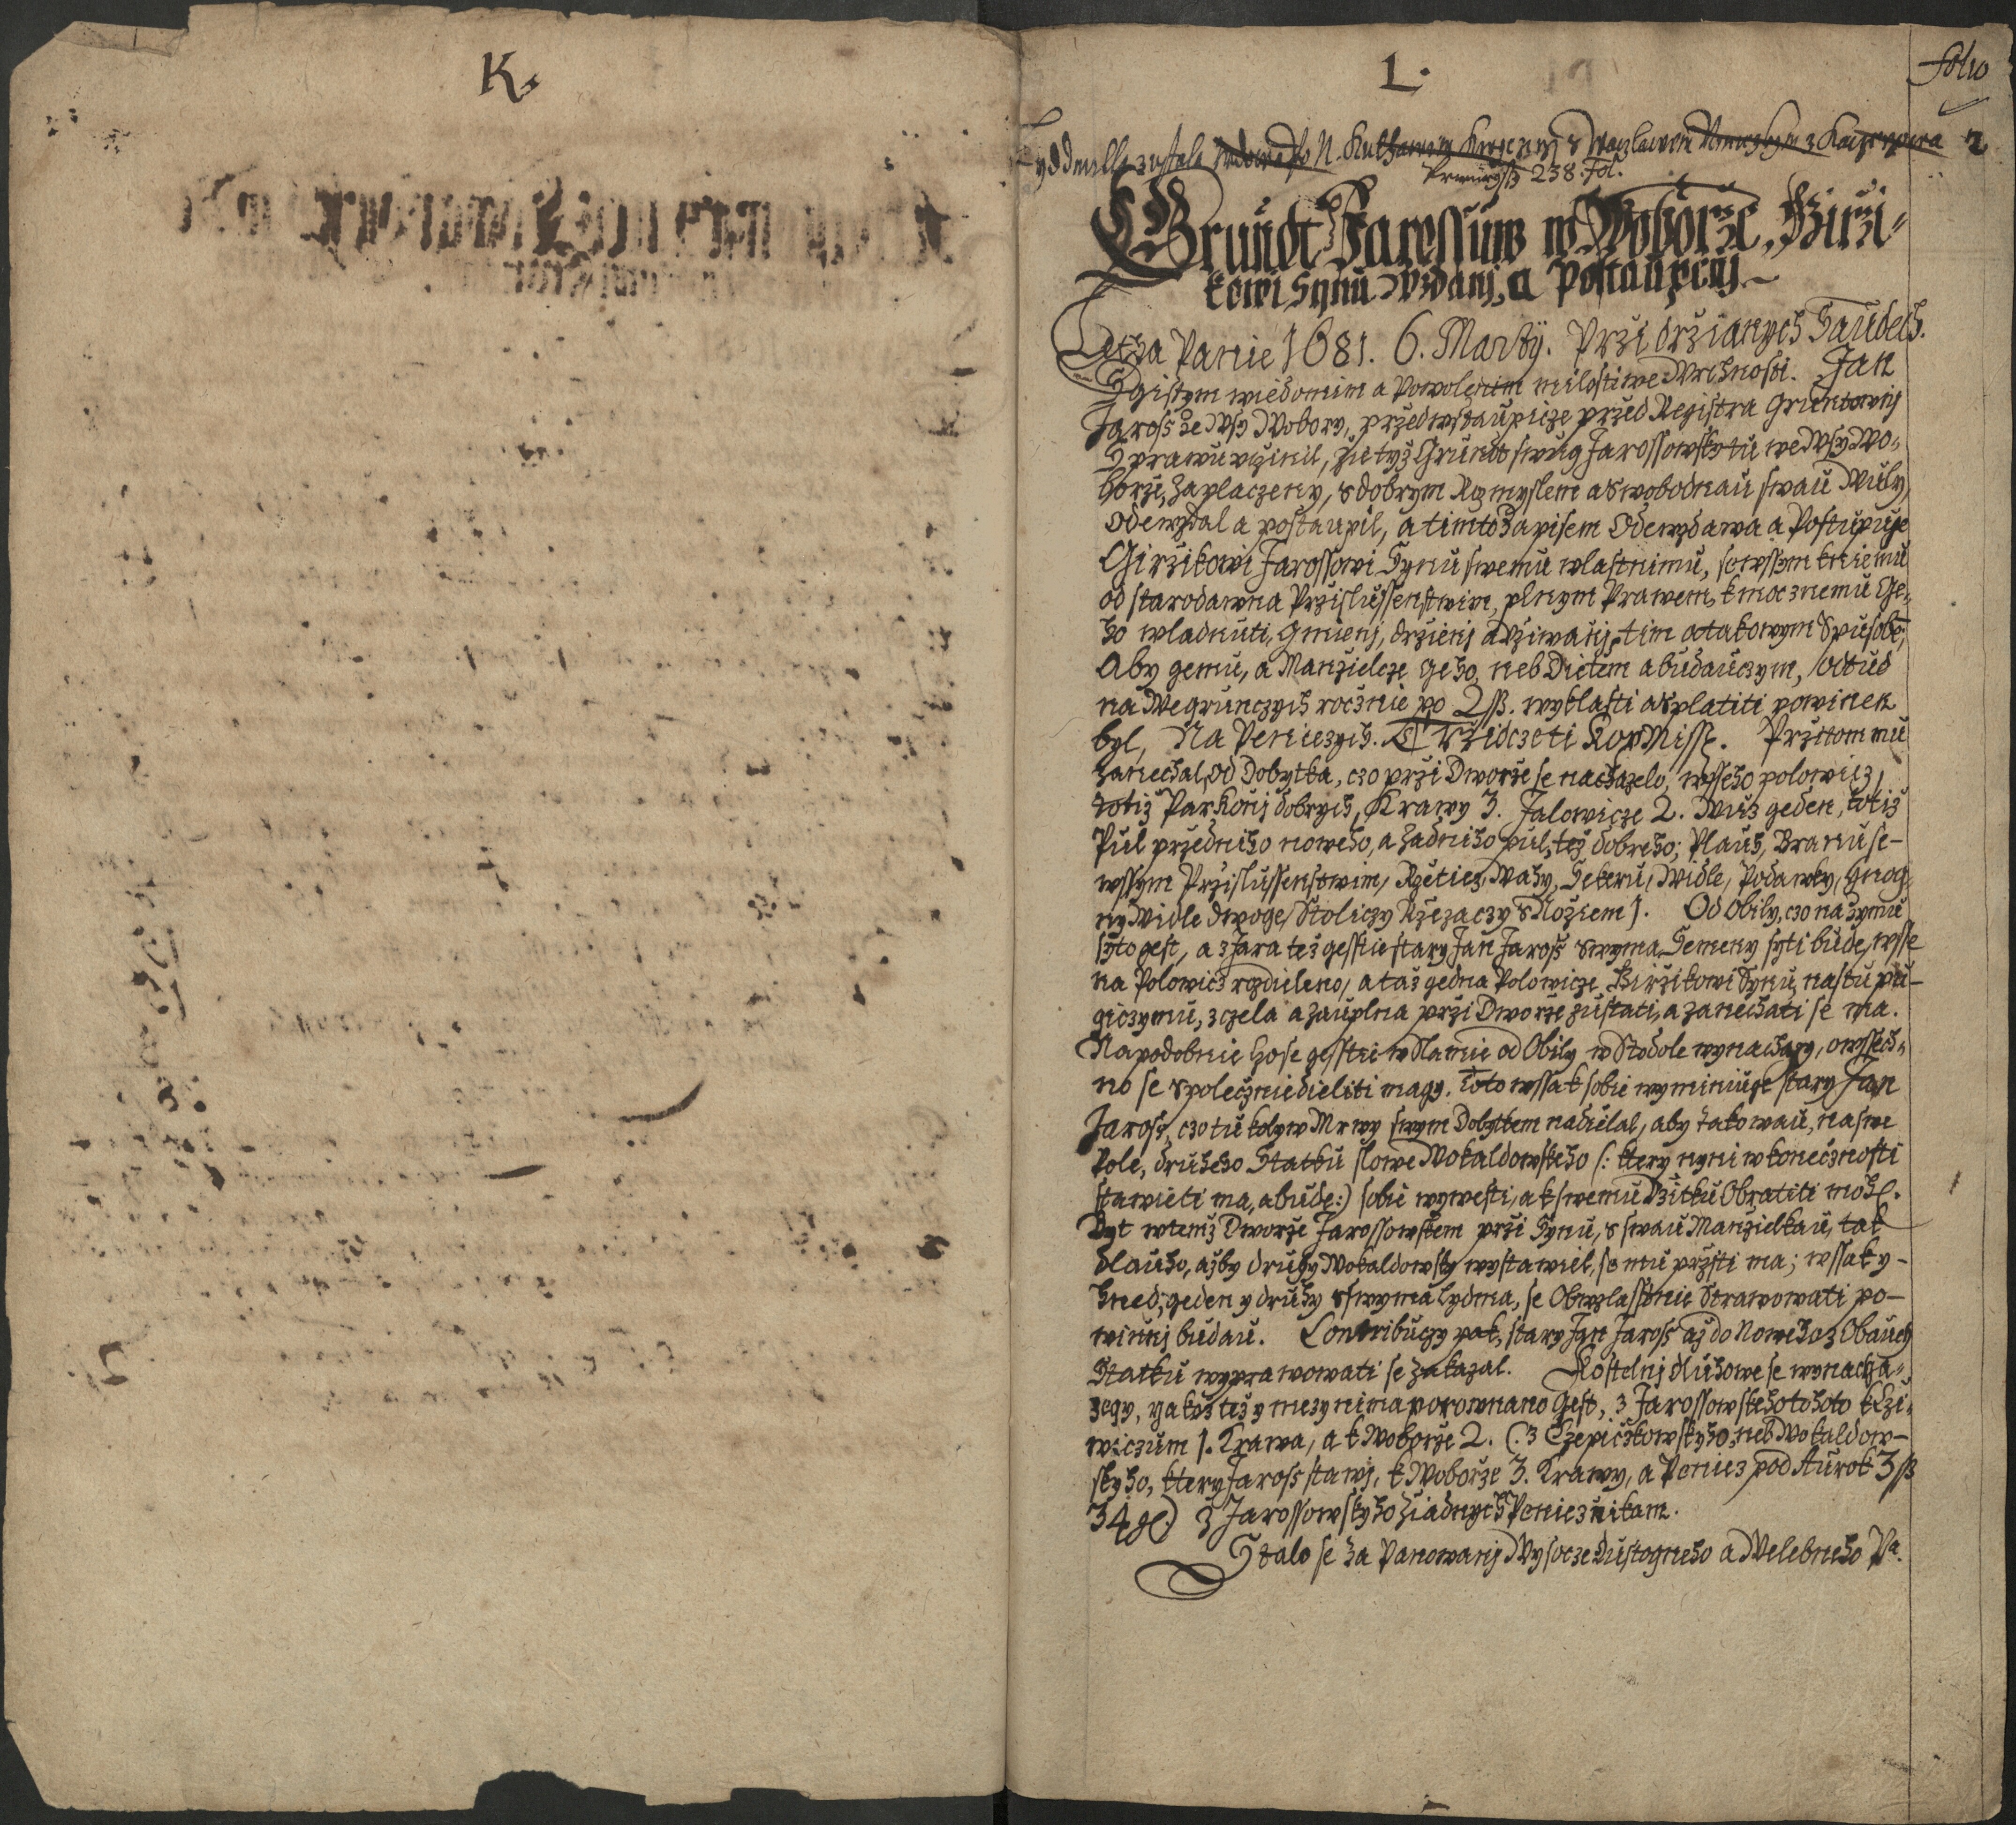 K.
L.
folio
2
238. Fol.
Grundt Jarossuw w Woborze, Girzi-
kowi Synu Wzdanj, a Postaupenj
Letha Panie 1681. 6. Martij. Przi drzianych Saudech.
S gistym wiedomim a Powolenim milostiwe Wrchnosti. Jan
Jaross ze Wsy Wobory, przedwstaupicze przed Registra Gruntownj
Sprawu uczinil, zie tyz Grundt swug Jarossowsky tu we Wsy Wo-
borze, zaplaczeny, s dobrym Rozmyslem a swobodnau swau Wuly,
Odewzdal a postaupil, a timto zapisem Odewzdawa a Postupuge
Girzikowi Jarossowi Synu swemu wlastnimu, sewssym k niemu
od starodawna Przislussenstwim, plnym Prawem, k mocznemu Ge-
ho wladnuti, gmienj, drzienj a uziwanj, tim a takowym Spusobe,
Aby gemu, a Manzielcze geho, neb Dietem a budauczym, odtud
na Wegrunczych rocznie po 2 ss. wyklasti a splatiti powinen
byl, Na Penieczych. Trzidczeti Kop Miss. Przitom mu
zanechal, od Dobytka, czo przi Dworze se nachazelo, wsseho polowicz,
totiz Par Konj dobrych, Krawy 3. Jalowicze 2. Wuz geden, totiz
Pul przedniho noweho, a zadniho pul, tez dobreho; Plauh, Branu se-
wssym Przislussenstwim, Rzetiez, Wahy, Sekeru, Widle, Podawky, Hnog-
ny Widle dwoge, Stoliczy Rzezaczy s Noziem 1. Od Obily, czo na zymu
syto gest, a z Jara tez gesstie stary Jan Jaross swyma Semeny syti bude, wsse
na Polowicz rozdieleno, a taz gedna Polowicze Girzikowi Synu, nastupu-
giczymu, zczela a zauplna przi Dworze zustati, a zanechati se ma.
Napodobnie ho se gesstie w Slamie od Obily w Stodole wynachazy, o wssech-
no se spoleczniedieliti magy. Toto wssak sobie wyminiuge stary Jan
Jaross, czo tu kolyw Mrwy swym Dobytkem nadielal, aby takowau, na swe
Pole, druheho Statku slowe Wokaldowskeho /: ktery nyni w konecznosti
stawieti ma, a bude:) sobie wywesti, a k swemu Uzitku Obratiti mohl.
Byt w temz Dworze Jarossowskem przi Synu, s swau Manzielkau, tak
dlauho, azby druhy Wokaldowsky wystawiel, se mu przsti ma; wssak y-
hned, geden y druhy s swyma Lydma, se Obwzlasstnie Strawowati po-
winnj budau. Contribuczy pak, stary Jan Jaross az do Noweho z Obauch
Statku wyprawowati se zakazal. Kostelnj dluhowe se wynacha-
zegy, yakoz tez y mezy nima porownano gest, z Jarossowskeho tohoto k Czi-
wiczum 1. Krawa, a k Woborze 2. (: z Czepiczkowskyho, neb Wokaldow-
skyho, ktery Jaross stawj, k Woborze 3. Krawy, a Peniez pod Aurok 3 ss
34 g:) z Jarossowskyho ziadnych Peniez nikam.
Stalo se za Panowanj Wysocze Dustogneho a Welebneho Pa.